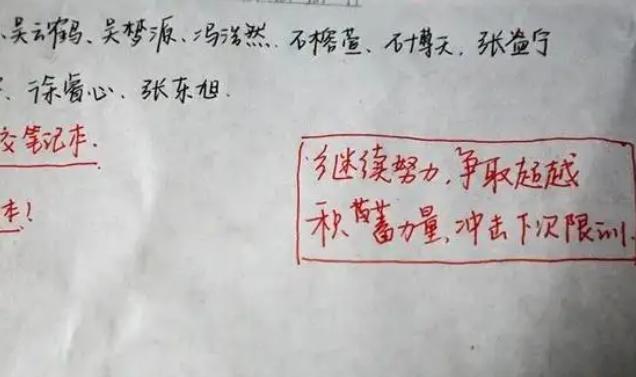 、吴云鹤、吴梦源、冯浩然、石榕萱、石博天、张益宁
、徐睿心、张东旭.
交笔记本.
本!
继续努力,争取超越
积蓄力量,冲击下次限训.